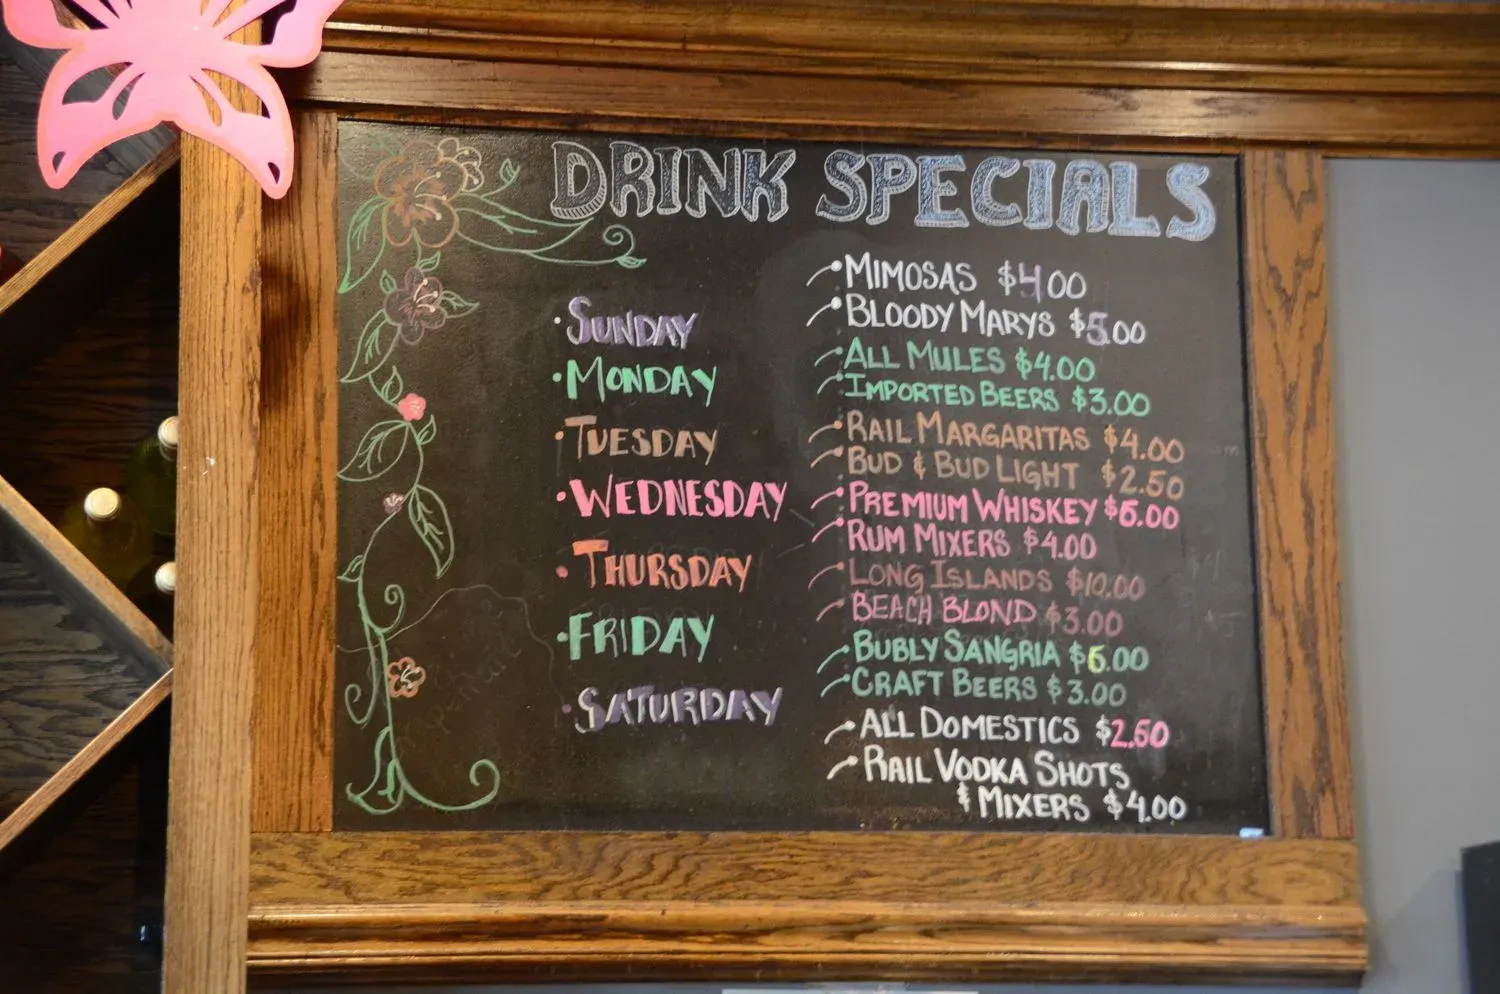 DRINK SPECIALS
MIMOSAS $4.00
BLOODY MARYS $5.00
·SUNDAY
·MONDAY
ALL MULES $4.00
IMPORTED BEERS $3.00
·TUESDAY
RAIL MARGARITAS $4.00
BUD & BUD LIGHT $2.50
·WEDNESDAY
PREMIUM WHISKEY $6.00
RUM MIXERS $4.00
·THURSDAY
LONG ISLANDS $10.00
BEACH BLOND $3.00
·FRIDAY
BUBLY SANGRIA $6.00
CRAFT BEERS $3.00
·SATURDAY
ALL DOMESTICS $2.50
RAIL VODKA SHOTS
& MIXERS $4.00